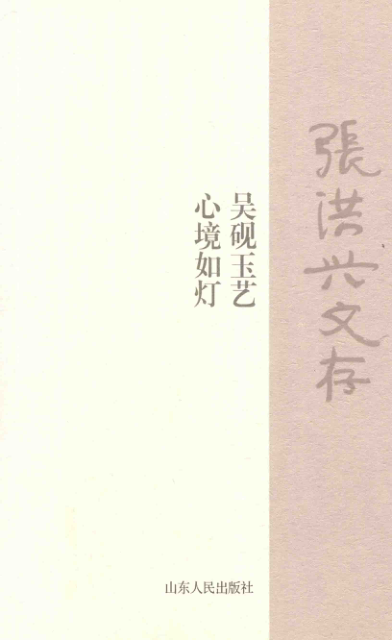 張洪兴文存
吴砚玉艺
心境如灯
山东人民出版社